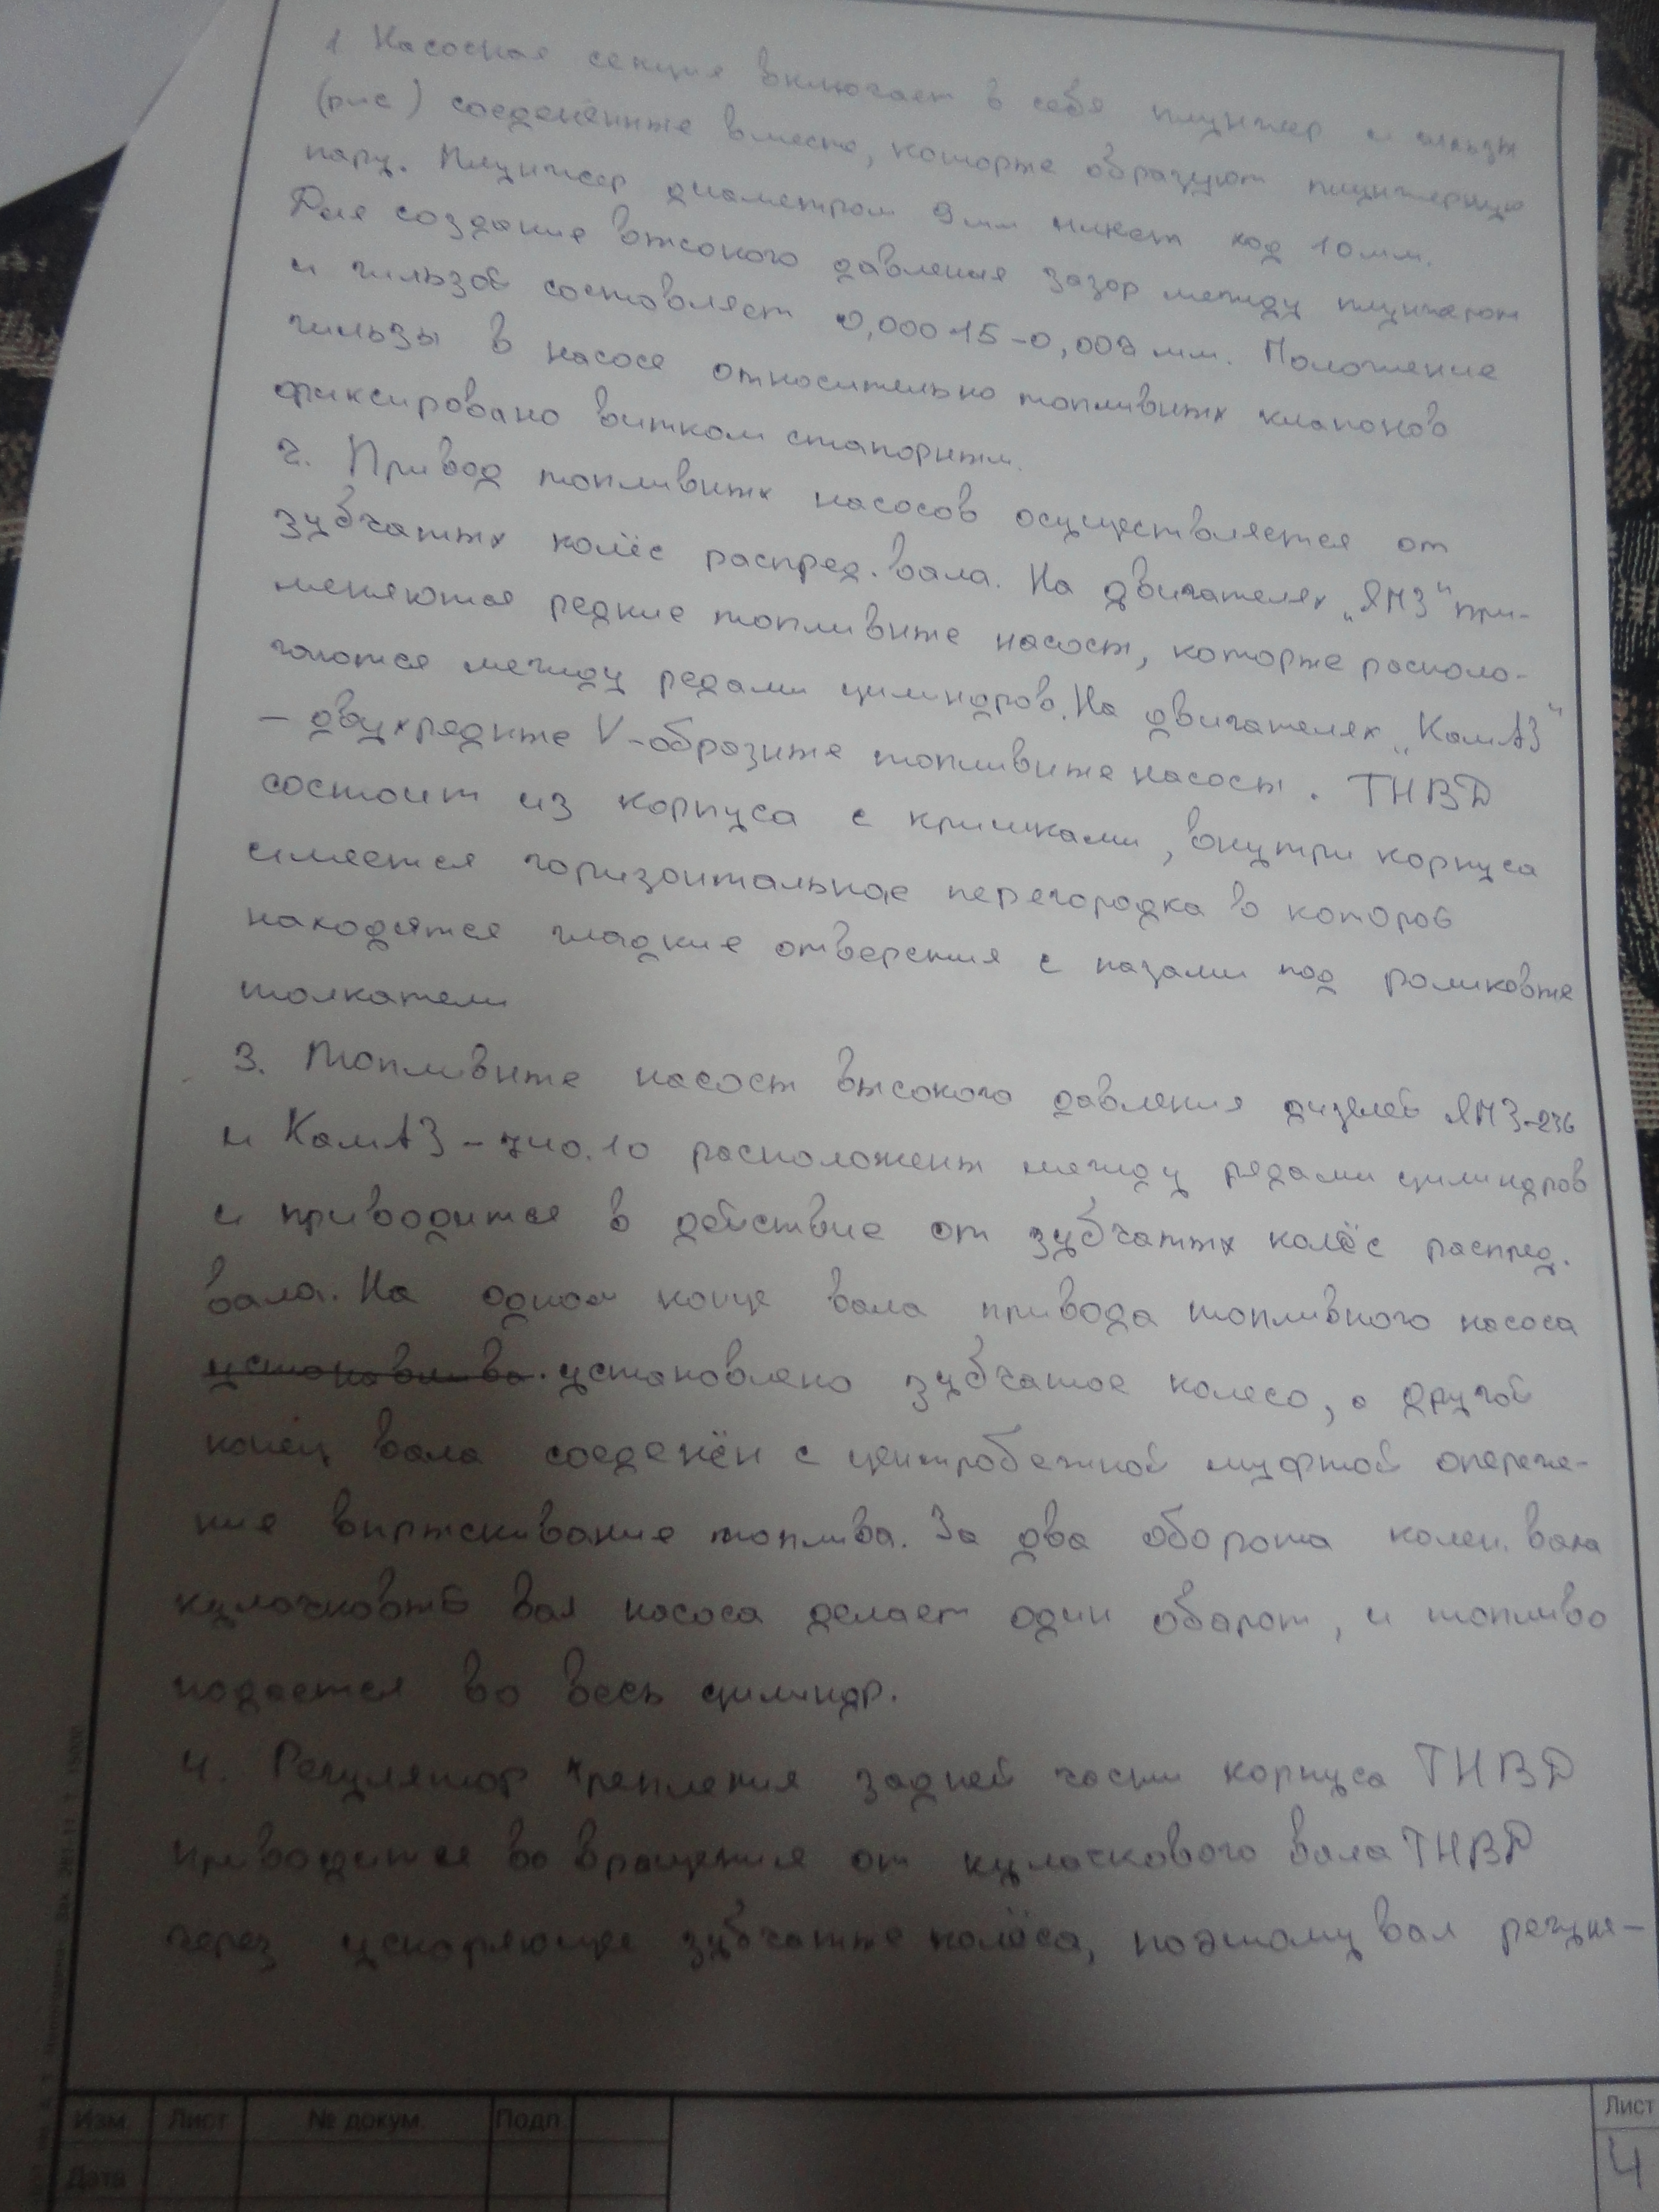 1 Насосная секция включает в себя плунжер и гильзы
(рис) соеденённые вместе, которые образуют плунжерную
пару. Плунжер диаметром 9мм имеет ход 10мм.
Для создание высокого давления зазор между плунжером
и гильзой состовляет 0,00015-0,002мм. Положение
гильзы в насосе относительно топливных клапонов
фиксировано витком стапорным.
2. Привод топливных насосов осуществляется от
зубчатых колёс распред. вала. На двигателях „ЯМЗ" при-
меняются редние топливные насосы, которые располо-
гаются между редами цилиндров. На двигателях „КамАЗ"
– двухредные V-образные топливные насосы. ТНВД
состоит из корпуса с кришками, внутри корпуса
имеется горизонтальное перегородка в которой
находятся гладкие отверстия с пазами под роликовые
толкатели
3. Топливные насосы высокого давления дизелей ЯМЗ-236
и КамАЗ-740.10 расположены между редами цилиндров
и приводится в действие от зубчатых колёс распред.
вала. На одном конце вала привода топливного насоса
установлено зубчатое колесо, а другой
конец вала соеденён с центробежной муфтой опереже-
ние впрыскивание топлива. За два оборота колен. вала
кулачковый вал насоса делает один обарот, и топливо
подается во весь цилиндр.
4. Регулятор крепления задней части корпуса ТНВД
приводится во вращения от кулачкового вала ТНВД
через ускоряющие зубчатые колёса, поэтому вал регуле-
Изм Лист № докум. Подп. Лист
Дата 4